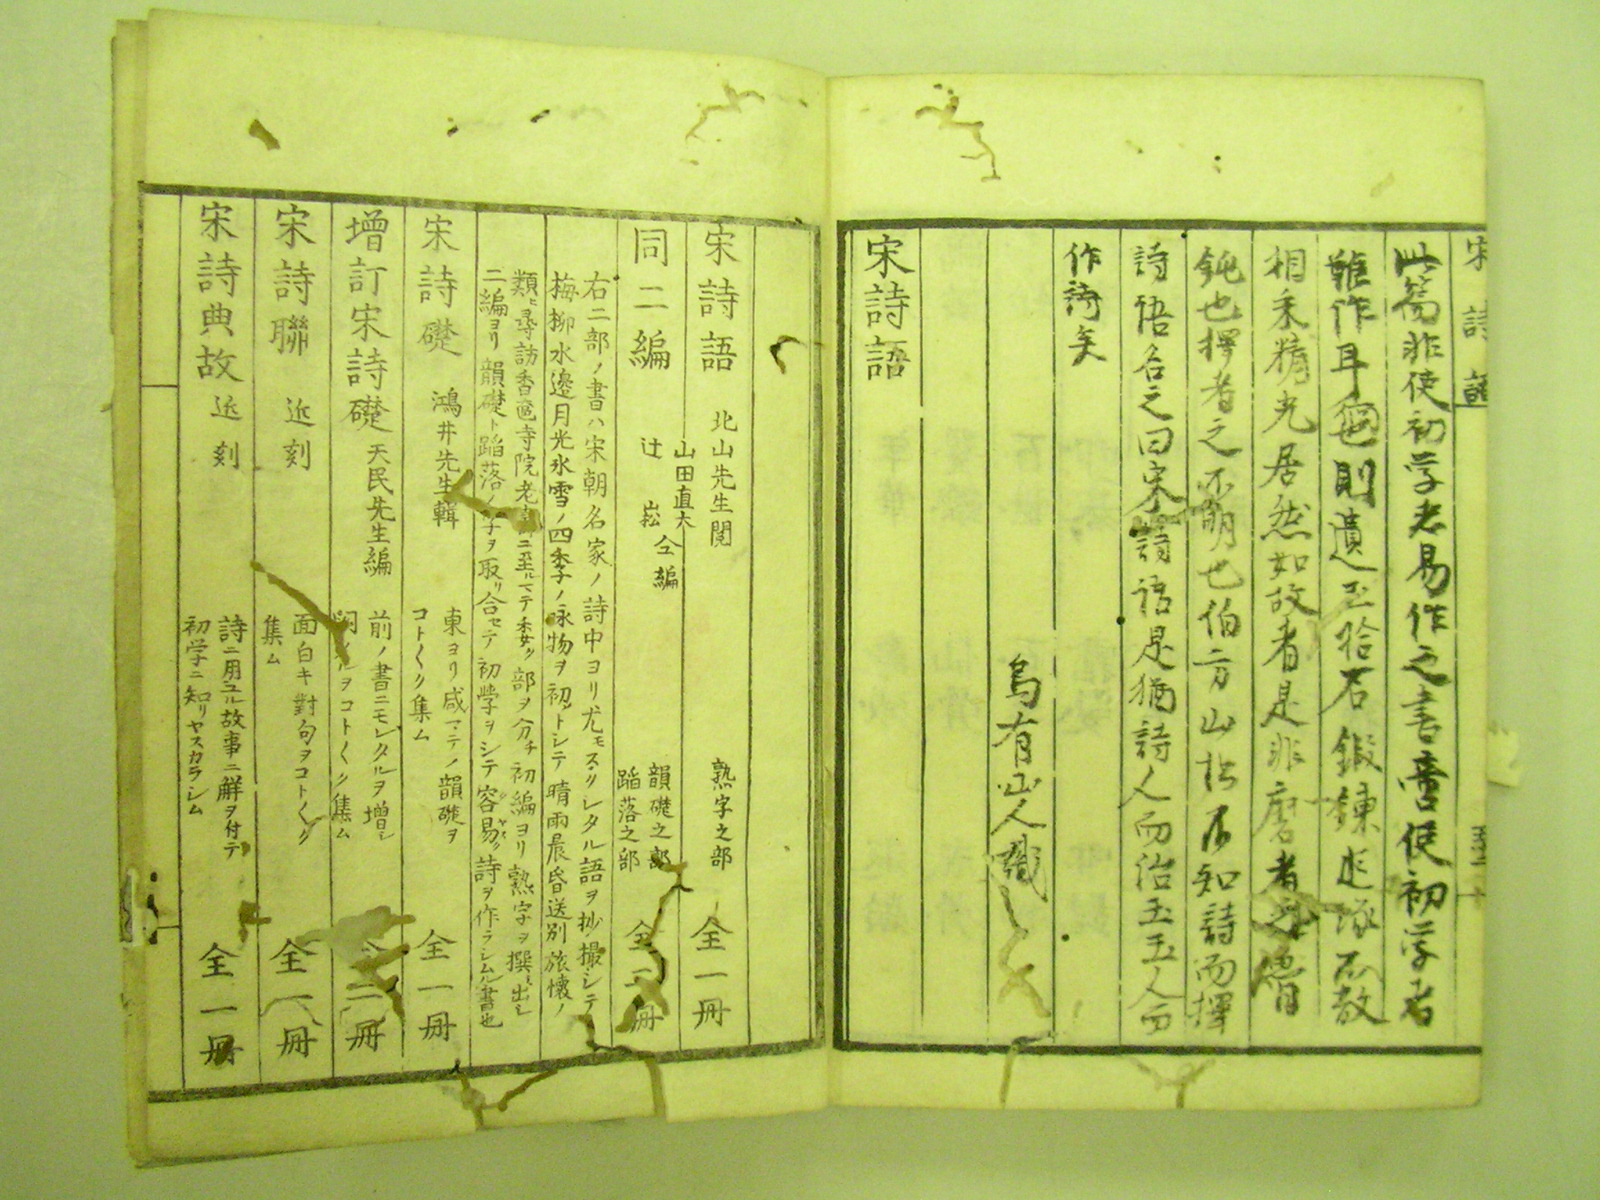 宋詩語
此篇非使初学者易作之書啻使初学者
難作耳
則遺玉拾石鍛錬
相
居然如故者是非磨者之
鈍也擇者之不明也伯方山
不知詩而擇
詩語名之曰宋詩語是猶詩人而治玉玉人而
作詩矣
烏有山人
宋詩語
宋詩語 北山先生閲 熟字之部 全一冊
山田直大
辻 崧 仝編
同二編 韻礎之部 全一冊
蹈落之部
右二部ノ書ハ宋朝名家ノ詩中ヨリ尤モスグレタル語ヲ抄撮シテ
梅柳水邊月光氷雪ノ四季ノ詠物ヲ初トシテ晴雨晨昏送別旅懷ノ
類ヒ尋訪香奩寺院老
ニ至ルマテ委ク部ヲ分チ初編ヨリ熟字ヲ撰ヒ出シ
二編ヨリ韻礎ト蹈落ノ字ヲ取リ合セテ初學ヲシテ容易ク詩ヲ作ラシムル書也
宋詩礎 鴻井先生輯 東ヨリ咸マテノ韻礎ヲ 全一冊
コト〱ク集ム
増訂宋詩礎 天民先生編 前ノ書ニモレタルヲ増シ 全二冊
ヲコト〱ク集ム
宋詩聯 近刻 面白キ對句ヲコト〱ク 全一冊
集ム
宋詩典故 近刻 詩ニ用ユル故事ニ解ヲ付テ 全一冊
初学ニ知リヤスカラシム